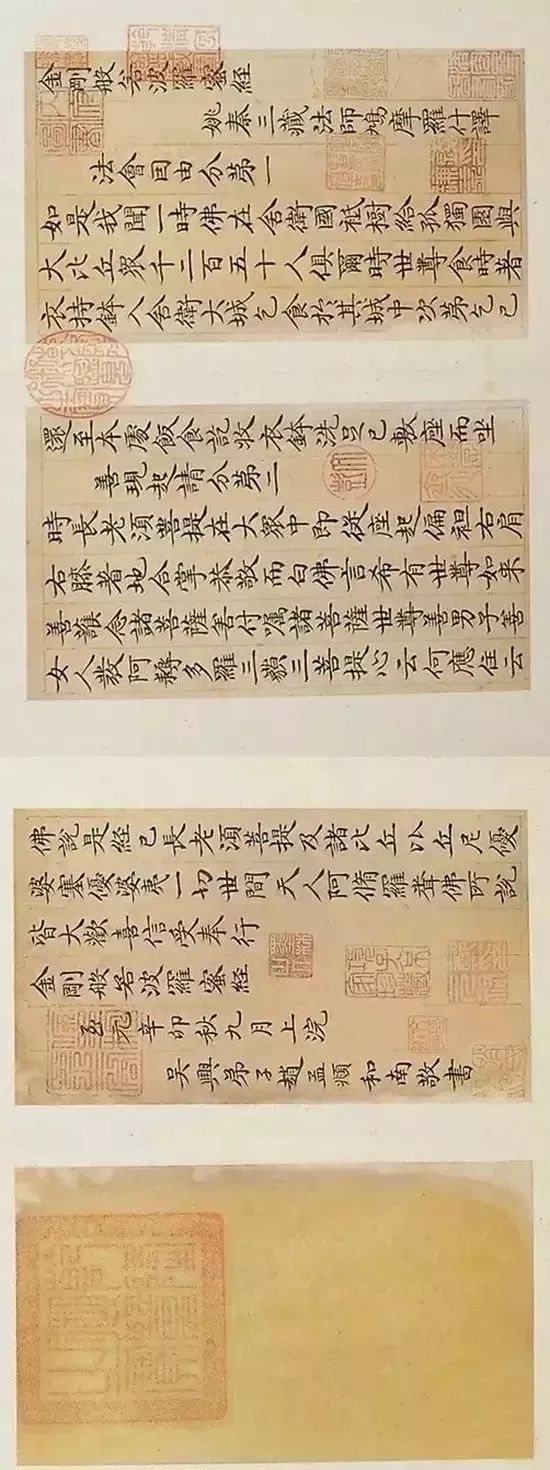 金剛般若波羅蜜経
姚秦三藏法師鳩摩羅什譯
法會因由分第一
如是我聞一時佛在舍衛國祇樹給孤獨園與
大比丘眾千二百五十人俱爾時世尊食時著
衣持鉢入舍衛大城乞食於其城中次第乞已
還至本處飯食訖收衣鉢洗足已敷座而坐
善現起請分第二
時長老須菩提在大眾中即從座起偏袒右肩
右膝著地合掌恭敬而白佛言希有世尊如来
善護念諸菩薩善付囑諸菩薩世尊善男子善
女人發阿耨多羅三藐三菩提心云何應住云
佛說是経已長老須菩提及諸比丘比丘尼優
婆塞優婆夷一切世間天人阿脩羅聞佛所說
皆大歡喜信受奉行
金剛般若波羅蜜経
至元辛卯秋九月上浣
吴興弟子趙孟頫和南敬書